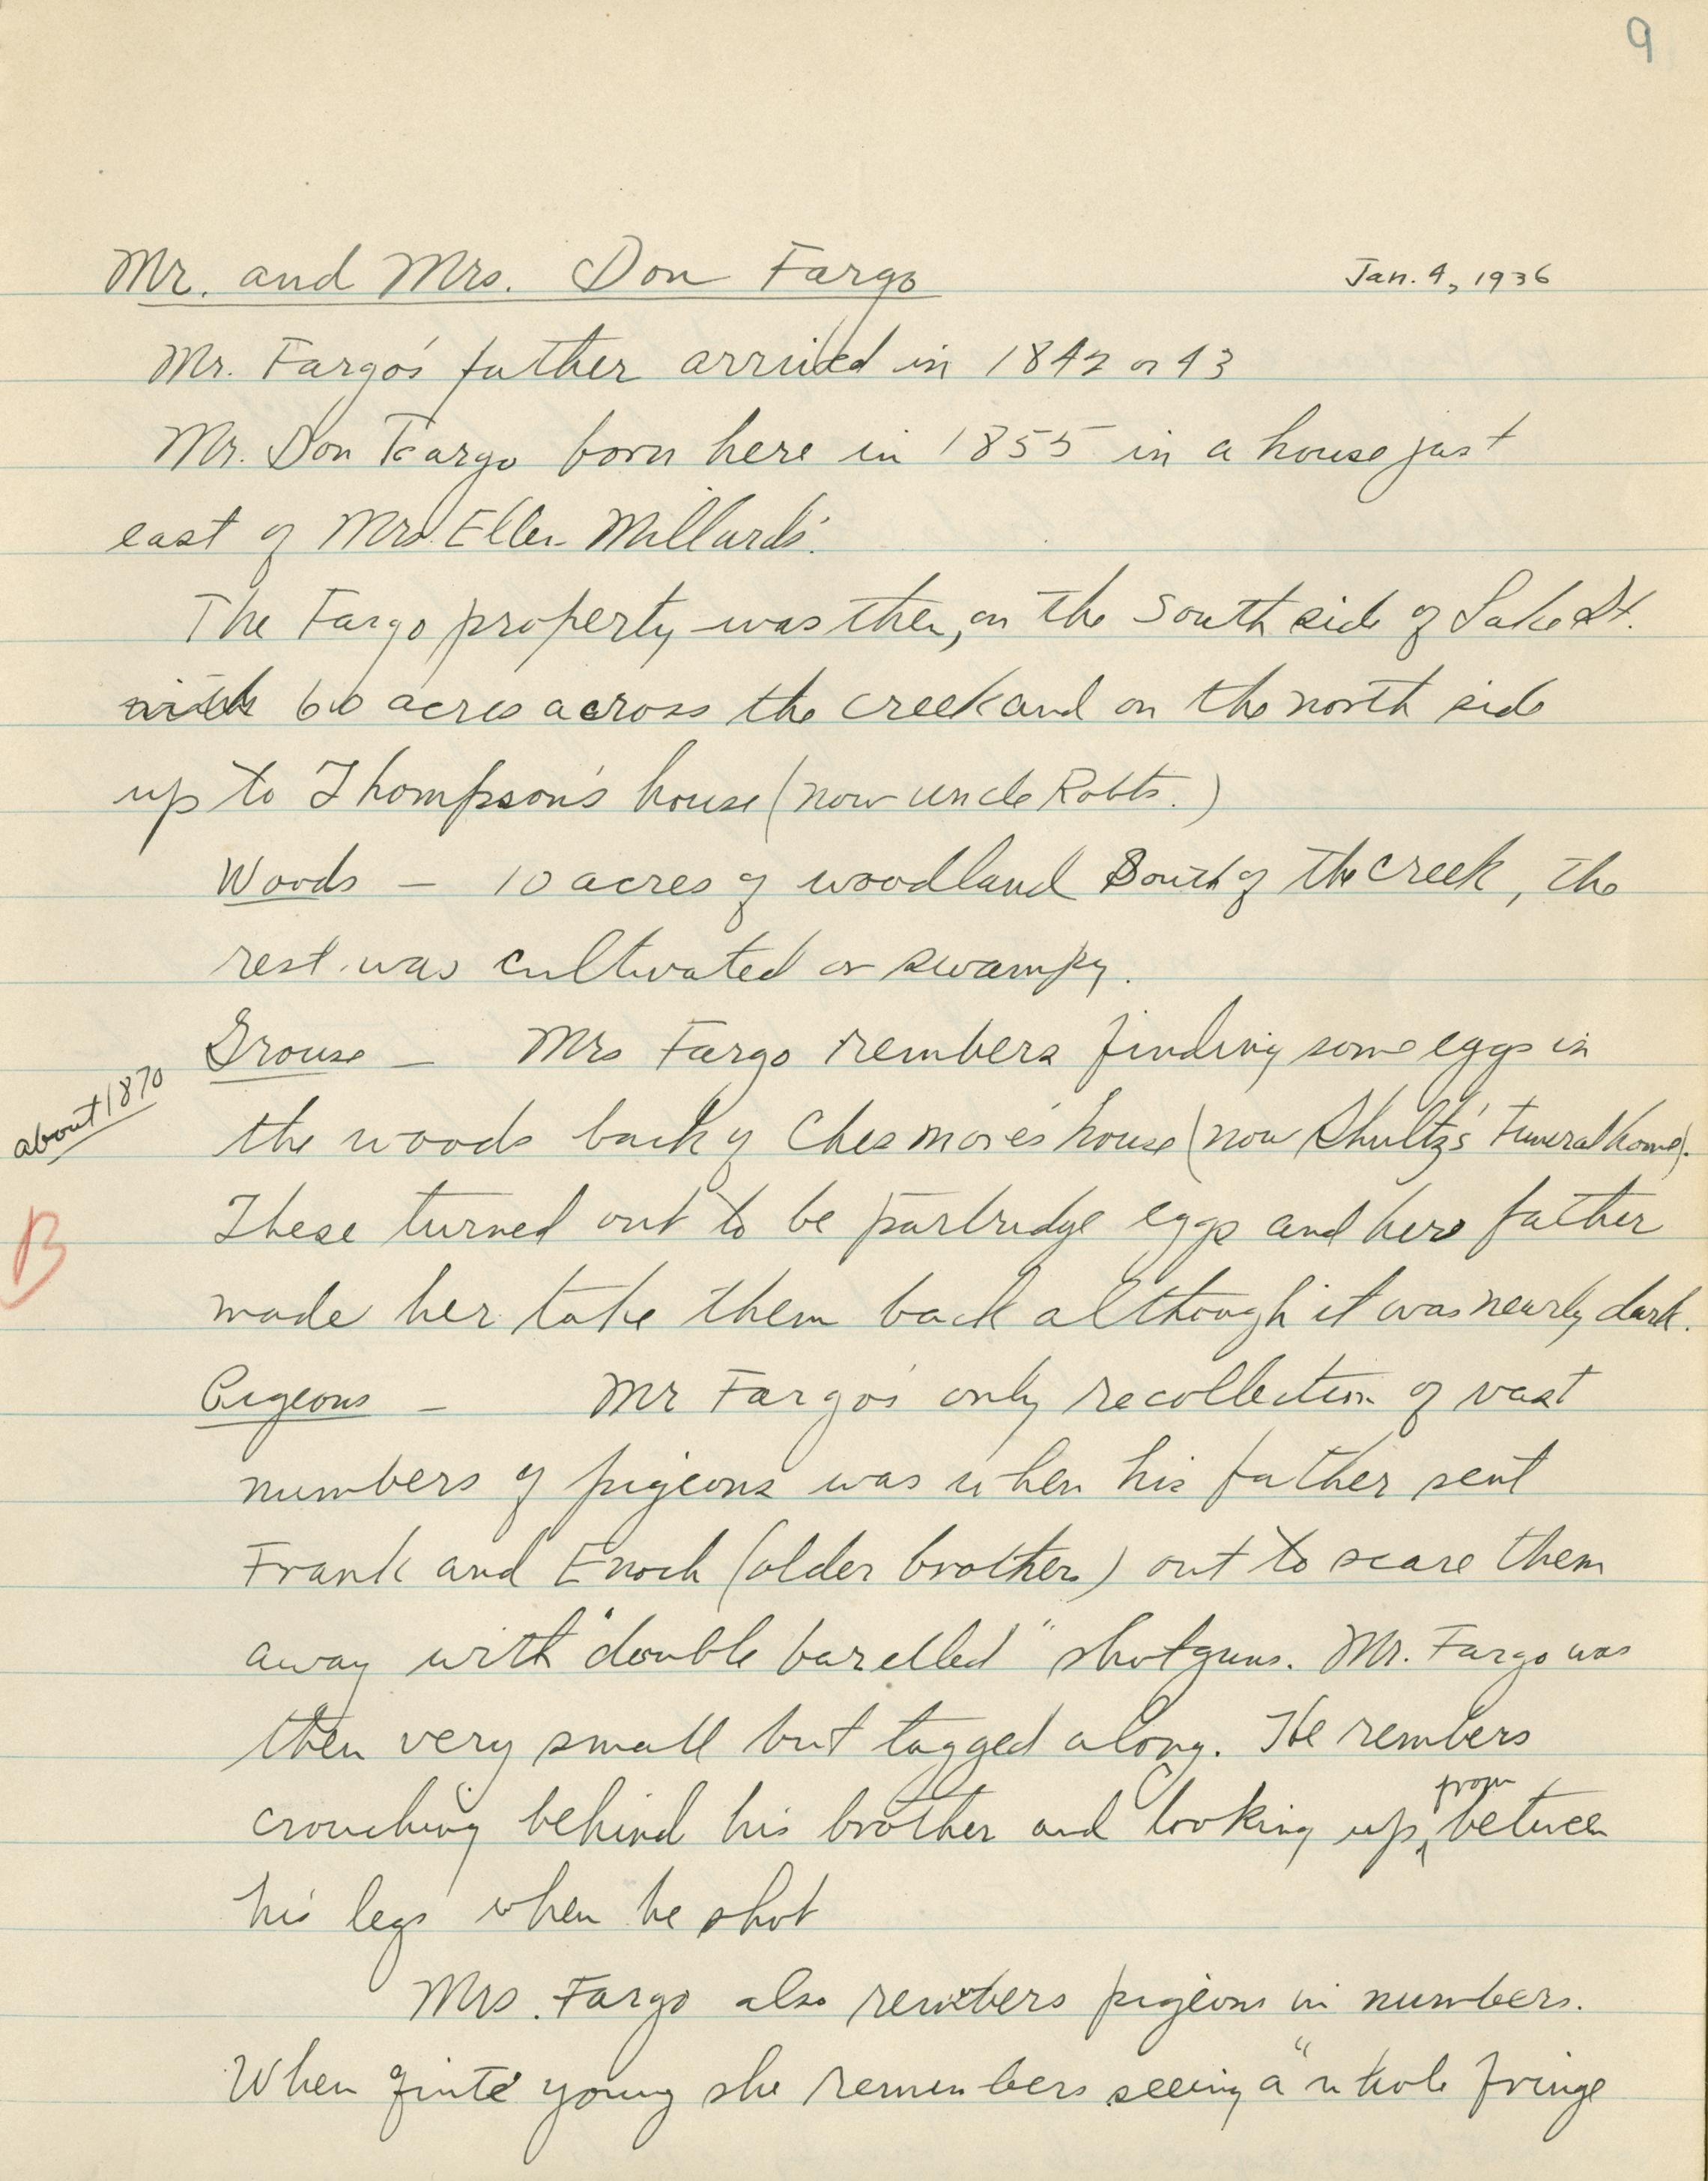 9
Mr. and Mrs. Don Fargo Jan. 4, 1936
Mr. Fargo's father arrived in 1842 or 43
Mr. Don Fargo born here in 1855 in a house just
east of Mrs. Ellen Millard's.
The Fargo property was then, on the South side of Lake St.
with 60 acres across the creek and on the north side
up to Thompson's house (now uncle Robts.)
Woods — 10 acres of woodland South of the creek, the
rest was cultivated or swampy.
Grouse — Mrs Fargo rembers finding some eggs in
about 1870
the woods back of Chesmore's house (now Shultz's Funeral home).
These turned out to be partridge eggs and her father
B
made her take them back although it was nearly dark.
Pigeons — Mr Fargo's only recollection of vast
numbers of pigeons was when his father sent
Frank and Enoch (older brothers) out to scare them
away with "double barelled" shotguns. Mr. Fargo was
then very small but tagged along. He rembers
crouching behind his brother and looking up from between
his legs when he shot
Mrs. Fargo also rembers pigeons in numbers.
When quite young she remembers seeing a "whole fringe